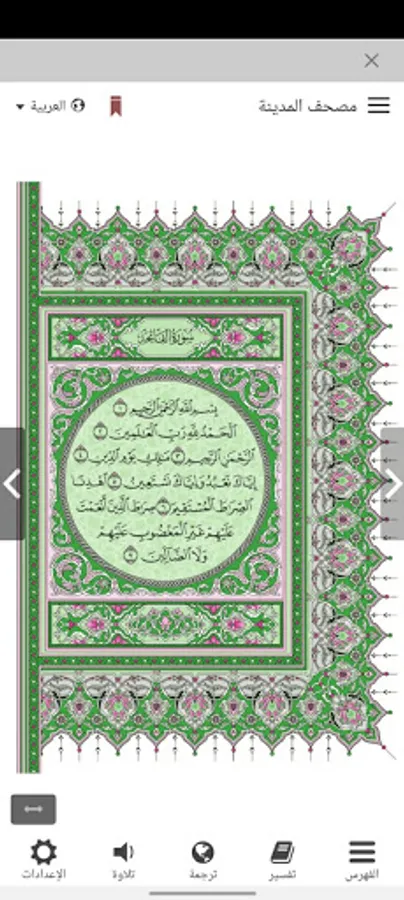 مصحف المدينة
العربية
سُورَةُ الفَاتِحَةِ
بِسْمِ ٱللَّهِ ٱلرَّحْمَٰنِ ٱلرَّحِيمِ ١
ٱلْحَمْدُ لِلَّهِ رَبِّ ٱلْعَٰلَمِينَ ٢
ٱلرَّحْمَٰنِ ٱلرَّحِيمِ ٣ مَٰلِكِ يَوْمِ ٱلدِّينِ ٤
إِيَّاكَ نَعْبُدُ وَإِيَّاكَ نَسْتَعِينُ ٥ ٱهْدِنَا
ٱلصِّرَٰطَ ٱلْمُسْتَقِيمَ ٦ صِرَٰطَ ٱلَّذِينَ أَنْعَمْتَ
عَلَيْهِمْ غَيْرِ ٱلْمَغْضُوبِ عَلَيْهِمْ
وَلَا ٱلضَّآلِّينَ ٧
الفهرس
تفسير
ترجمة
تلاوة
الإعدادات